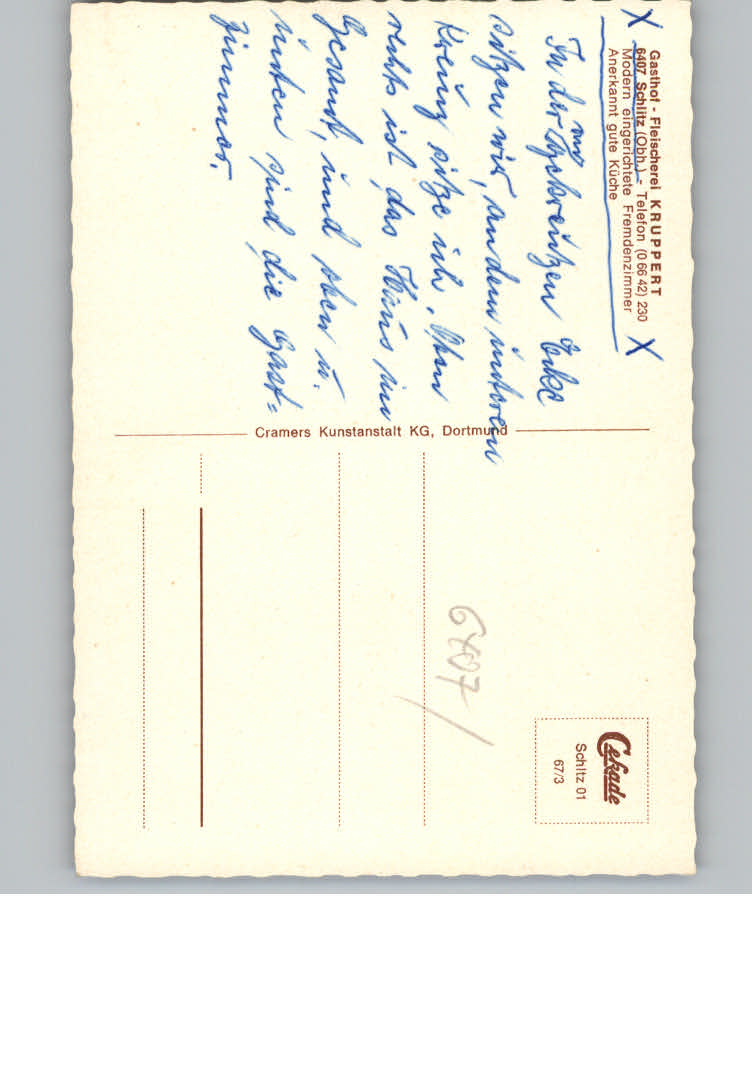 Gasthof - Fleischerei KRUPPERT
6407 Schlitz (Obh.) - Telefon (0 66 42) 230
Modern eingerichtete Fremdenzimmer
Anerkannt gute Küche
X X
In der angekreutzen Ecke
sitzen wir, an dem unteren
Kreuz sitze ich. Oben
rechts ist das Haus im
Gesamt, und oben u.
unten sind die Gast=
zimmer.
Cramers Kunstanstalt KG, Dortmund
6407
Cekade
Schltz 01
67/3